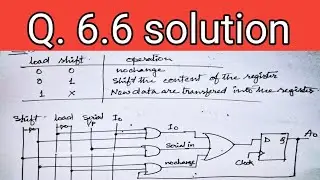 Q. 6.6 solution
load shift operation
0 0 no change
0 1 Shift the content of the register
1 X New data are transfered into the register
Shift load Serial I/P I₀
I₀
Serial in
no change
D Q A₀
Clock